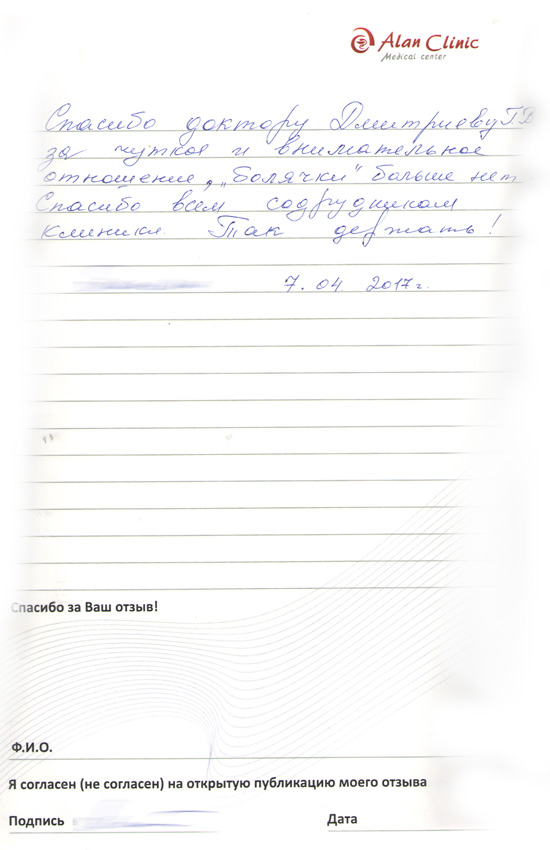 Alan Clinic
Medical center
Спасибо доктору Дмитриеву Г.В
за чуткое и внимательное
отношение, „Болячки" больше нет
Спасибо всем содрудникам
клиники. Так держать!
7.04 2017г.
Спасибо за Ваш отзыв!
Ф.И.О.
Я согласен (не согласен) на открытую публикацию моего отзыва
Подпись
Дата